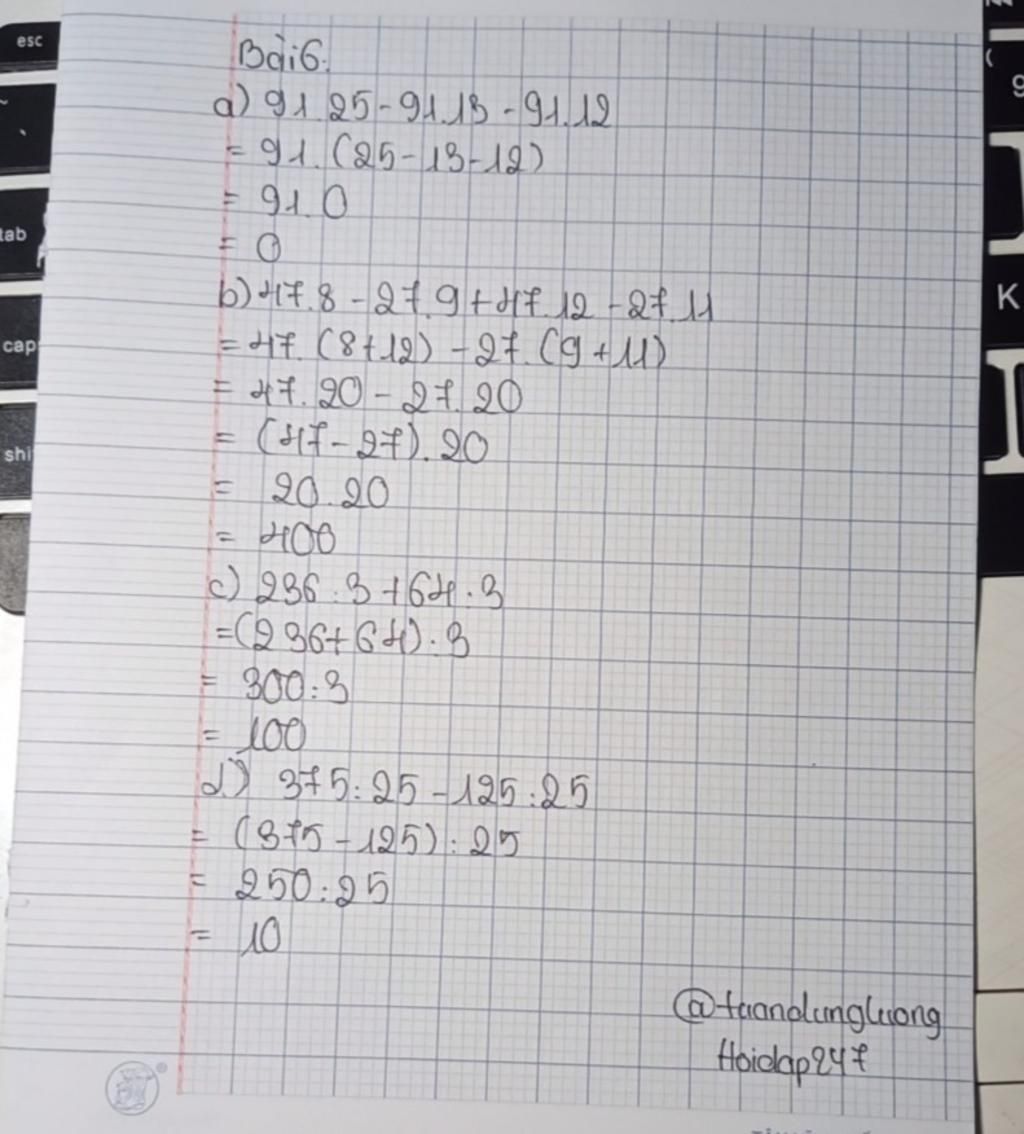 esc
Bài 6.
a) 91.25 - 91.13 - 91.12
= 91.(25 - 13 - 12)
= 91.0
= 0
b) 47.8 - 27.9 + 47.12 - 27.11
= 47.(8+12) - 27.(9+11)
= 47.20 - 27.20
= (47 - 27).20
= 20.20
= 400
c) 236:3 + 64:3
= (236 + 64):3
= 300:3
= 100
d) 375:25 - 125:25
= (375 - 125):25
= 250:25
= 10
@tuandungluong
Hoidap247
tab
cap
shi
9
K